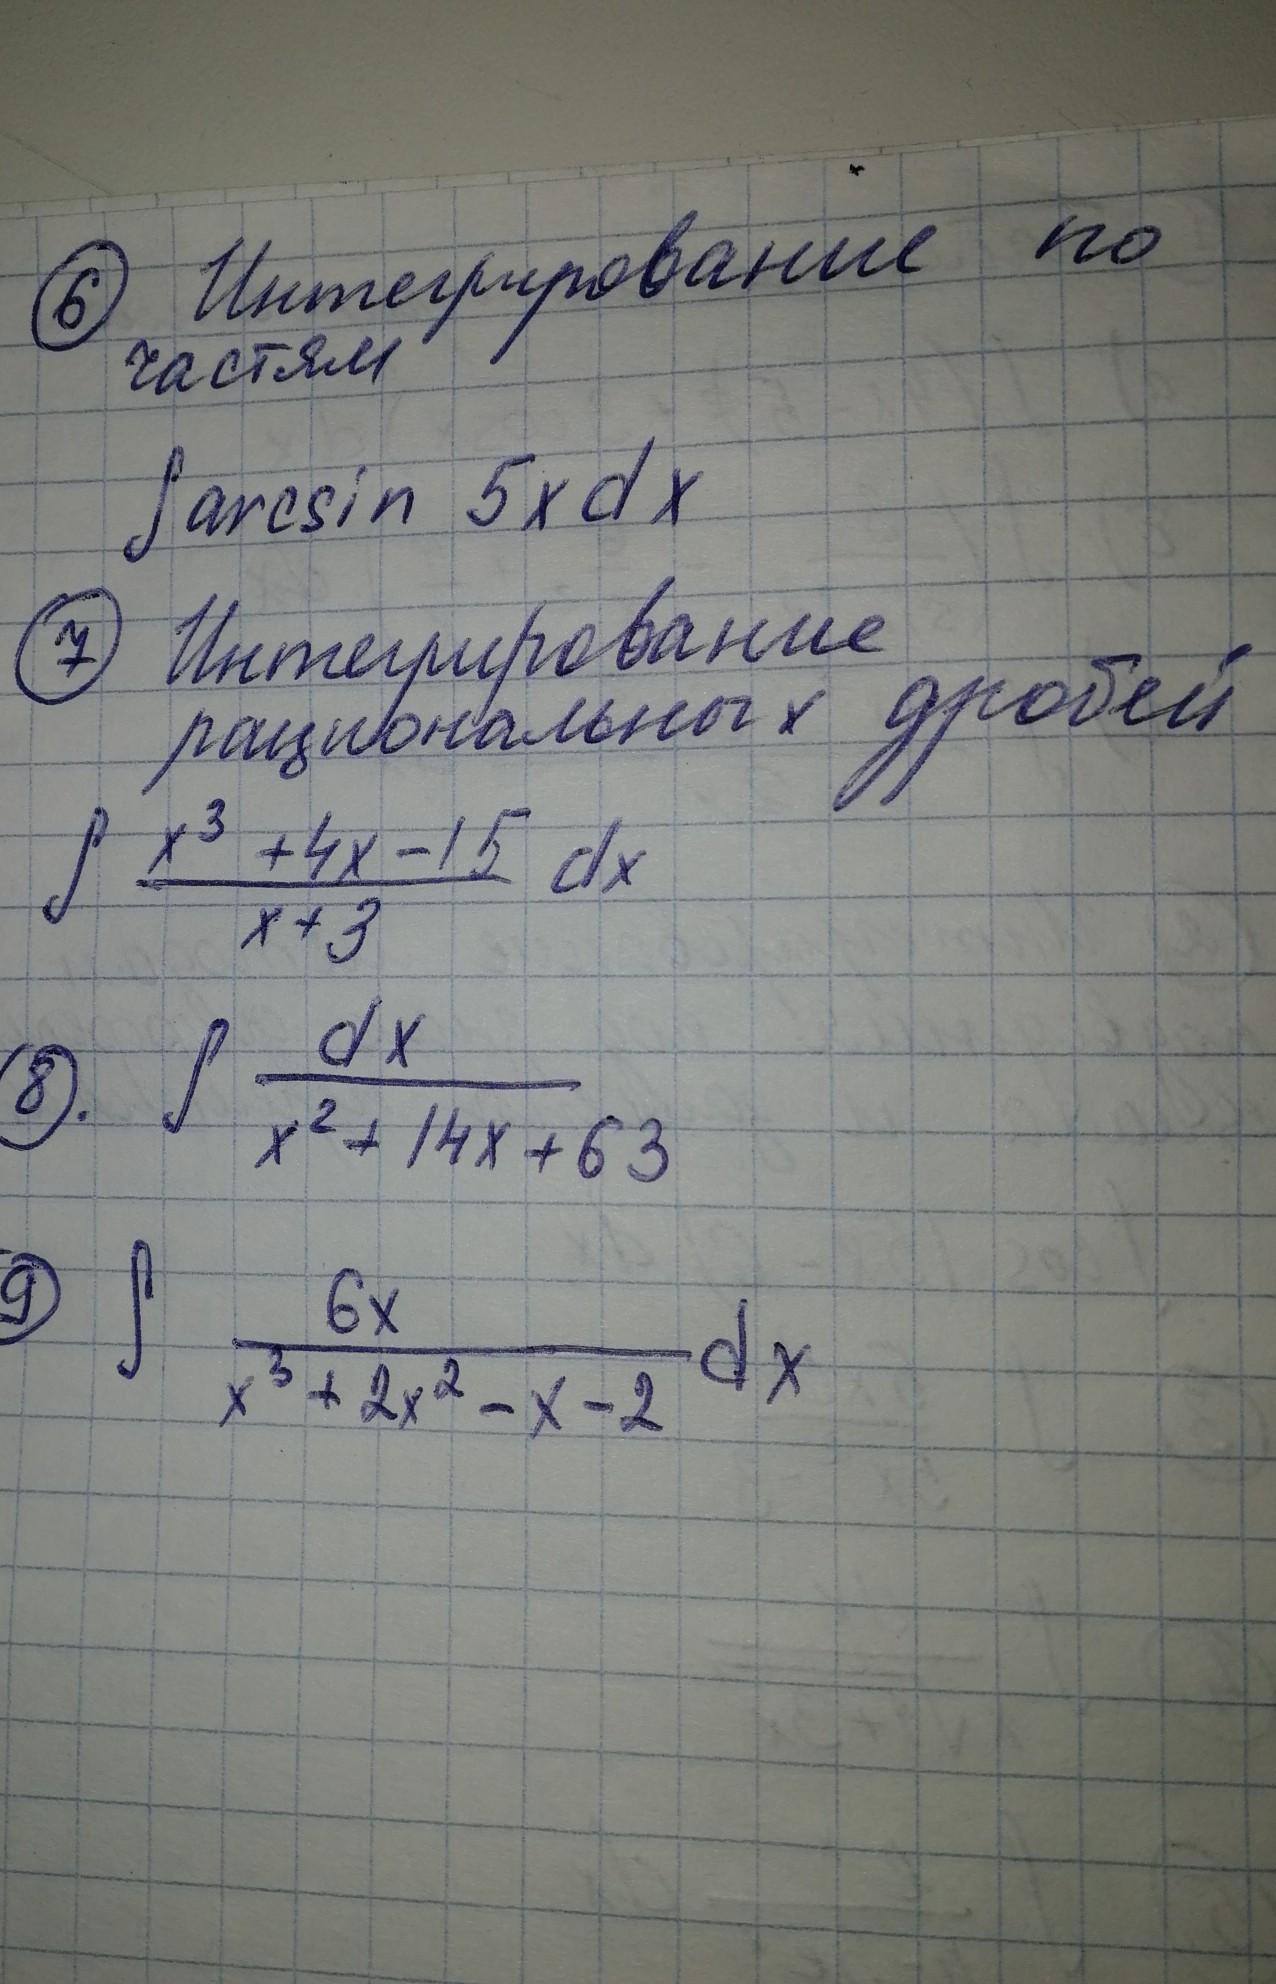 6 Интегрирование по
частям
∫ arcsin 5x dx
7 Интегрирование
рациональных дробей
∫ (x³ + 4x - 15)/(x + 3) dx
8. ∫ dx/(x² + 14x + 63)
9 ∫ 6x/(x³ + 2x² - x - 2) dx